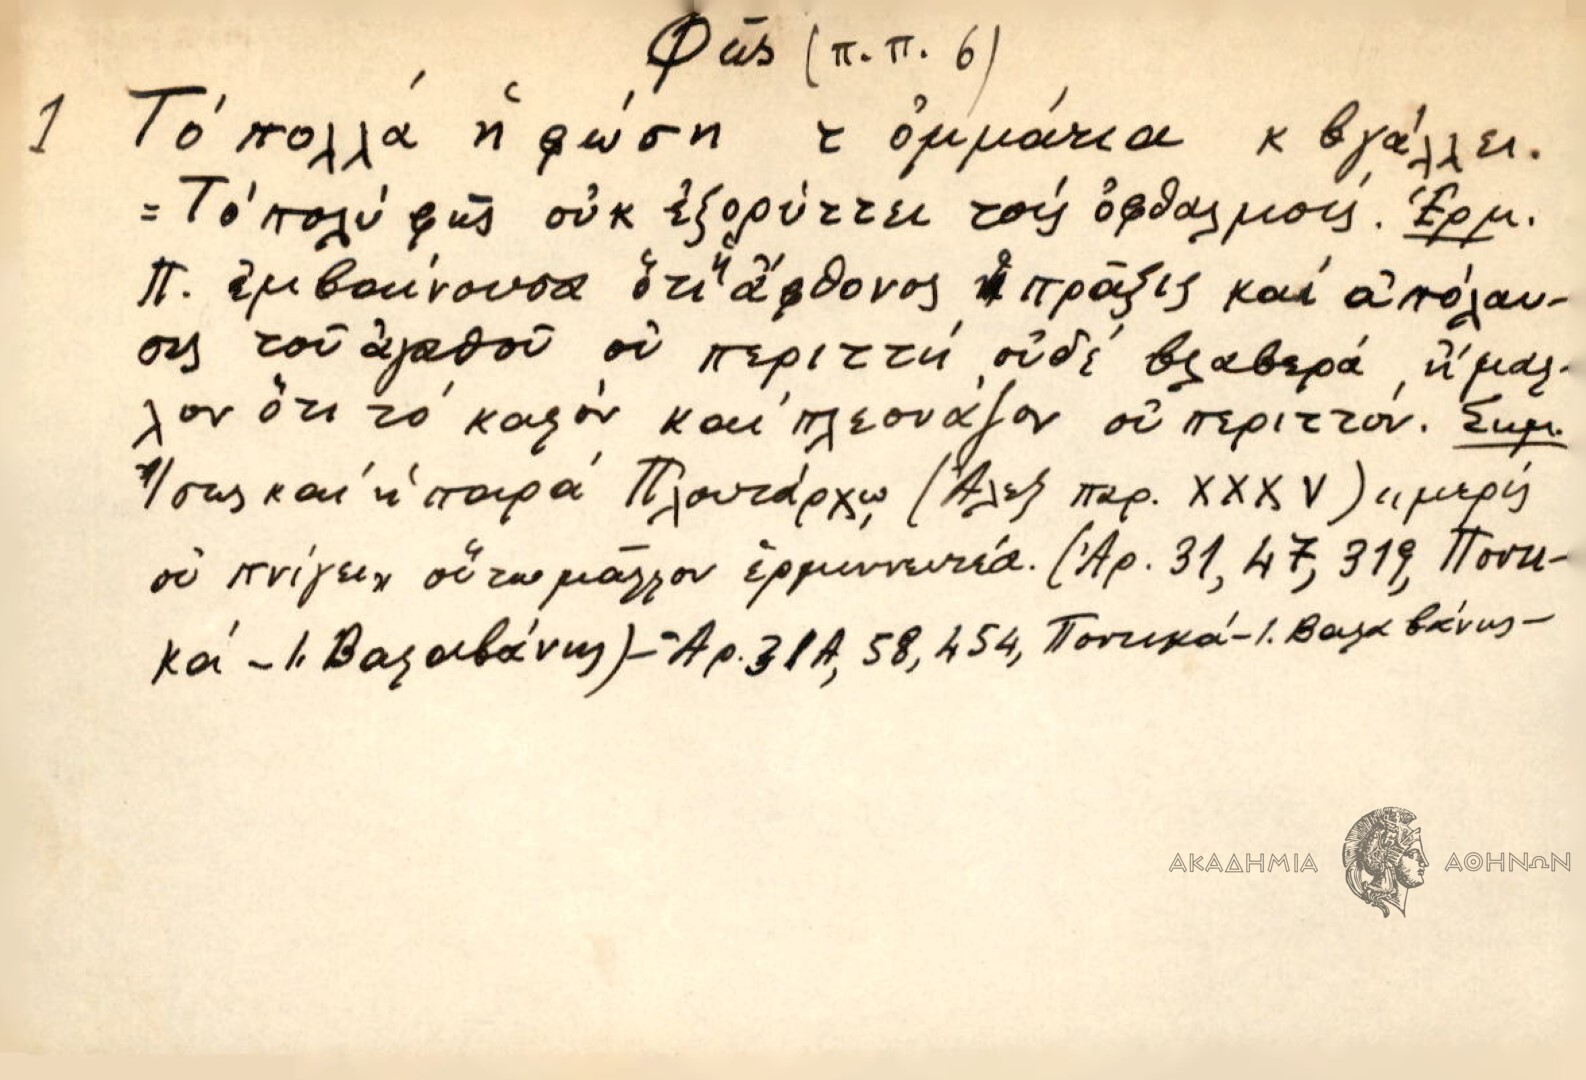 Φῶς (π. π. 6)
1 Τό πολλά ἡ φώση τ ὀμμάτια κ βγάλλει.
= Τό πολύ φῶς οὐκ ἐξορύττει τούς ὀφθαλμούς. Ἑρμ.
Π. ἐμβαίνουσα ὅτι ἡ ἄφθονος πρᾶξις καί ἀπόλαυ-
σις τοῦ ἀγαθοῦ οὐ περιττή οὐδέ βλαβερά, ἤ μᾶλ-
λον ὅτι τό καλόν καί πλεονάζον οὐ περιττόν. Σημ.
Ἴσως καί ἡ παρά Πλουτάρχῳ (Ἀλεξ παρ. XXXV) "μερίς
οὐ πνίγει" οὕτω μᾶλλον ἑρμηνευτέα. (Ἀρ. 31, 47, 319, Ποντι-
κά - Ι. Βαλαβάνης) - Ἀρ. 31Α, 58, 454, Ποντικά - Ι. Βαλαβάνης -
ΑΚΑΔΗΜΙΑ ΑΘΗΝΩΝ